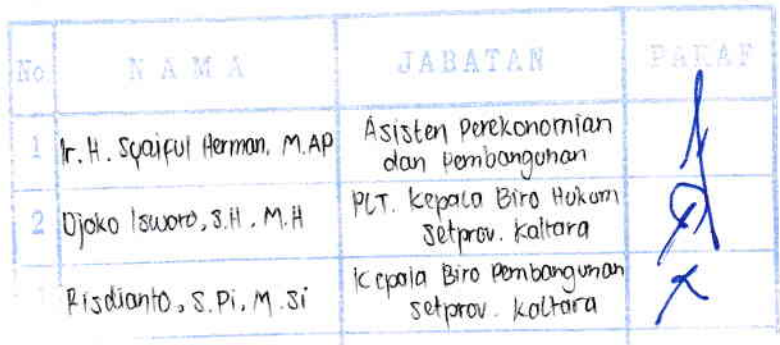 No N A M A JABATAN PARAF
1 Ir. H. Syaiful Herman, M.AP Asisten Perekonomian
dan Pembangunan
2 Djoko Isworo, S.H., M.H PLT. Kepala Biro Hukum
Setprov. Kaltara
Risdianto, S.Pi, M.Si Kepala Biro Pembangunan
Setprov. Kaltara